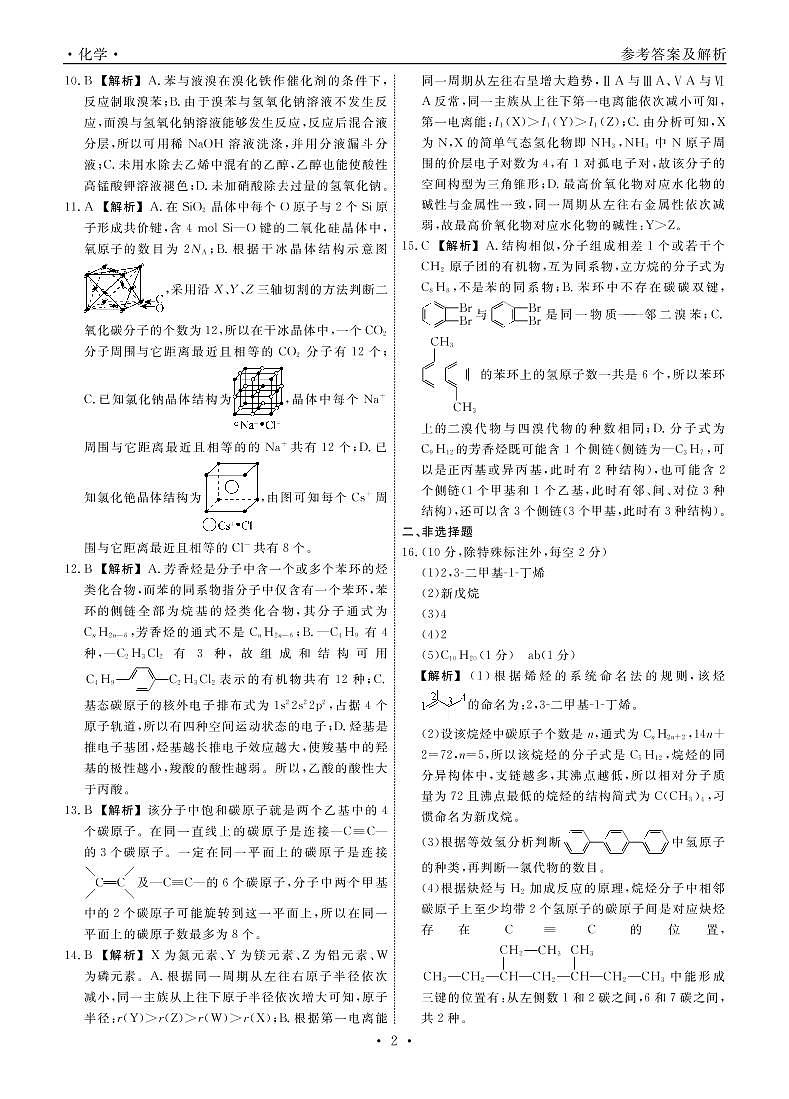 ·化学·
参考答案及解析
10. B 【解析】A. 苯与液溴在溴化铁作催化剂的条件下,
反应制取溴苯;B. 由于溴苯与氢氧化钠溶液不发生反
应,而溴与氢氧化钠溶液能够发生反应,反应后混合液
分层,所以可用稀 NaOH 溶液洗涤,并用分液漏斗分
液;C. 未用水除去乙烯中混有的乙醇,乙醇也能使酸性
高锰酸钾溶液褪色;D. 未加硝酸除去过量的氢氧化钠。
11. A 【解析】A. 在 SiO₂ 晶体中每个 O 原子与 2 个 Si 原
子形成共价键,含 4 mol Si—O 键的二氧化硅晶体中,
氧原子的数目为 2N_A;B. 根据干冰晶体结构示意图
C
O
,采用沿 X、Y、Z 三轴切割的方法判断二
氧化碳分子的个数为 12,所以在干冰晶体中,一个 CO₂
分子周围与它距离最近且相等的 CO₂ 分子有 12 个;
C. 已知氯化钠晶体结构为 ,晶体中每个 Na⁺
○Na⁺ ●Cl⁻
周围与它距离最近且相等的的 Na⁺ 共有 12 个;D. 已
知氯化铯晶体结构为 ,由图可知每个 Cs⁺ 周
○Cs⁺ ●Cl
围与它距离最近且相等的 Cl⁻ 共有 8 个。
12. B 【解析】A. 芳香烃是分子中含一个或多个苯环的烃
类化合物,而苯的同系物指分子中仅含有一个苯环,苯
环的侧链全部为烷基的烃类化合物,其分子通式为
CₙH₂ₙ₋₆,芳香烃的通式不是 CₙH₂ₙ₋₆;B. —C₄H₉ 有 4
种,—C₂H₃Cl₂ 有 3 种,故组成和结构可用
C₄H₉— —C₂H₃Cl₂ 表示的有机物共有 12 种;C.
基态碳原子的核外电子排布式为 1s²2s²2p²,占据 4 个
原子轨道,所以有四种空间运动状态的电子;D. 烃基是
推电子基团,烃基越长推电子效应越大,使羧基中的羟
基的极性越小,羧酸的酸性越弱。所以,乙酸的酸性大
于丙酸。
13. B 【解析】该分子中饱和碳原子就是两个乙基中的 4
个碳原子。在同一直线上的碳原子是连接—C≡C—
的 3 个碳原子。一定在同一平面上的碳原子是连接
C=C 及—C≡C—的 6 个碳原子,分子中两个甲基
中的 2 个碳原子可能旋转到这一平面上,所以在同一
平面上的碳原子数最多为 8 个。
14. B 【解析】X 为氮元素、Y 为镁元素、Z 为铝元素、W
为磷元素。A. 根据同一周期从左往右原子半径依次
减小,同一主族从上往下原子半径依次增大可知,原子
半径:r(Y)>r(Z)>r(W)>r(X);B. 根据第一电离能
同一周期从左往右呈增大趋势,ⅡA 与ⅢA、ⅤA 与Ⅵ
A 反常,同一主族从上往下第一电离能依次减小可知,
第一电离能:I₁(X)>I₁(Y)>I₁(Z);C. 由分析可知,X
为 N,X 的简单气态氢化物即 NH₃,NH₃ 中 N 原子周
围的价层电子对数为 4,有 1 对孤电子对,故该分子的
空间构型为三角锥形;D. 最高价氧化物对应水化物的
碱性与金属性一致,同一周期从左往右金属性依次减
弱,故最高价氧化物对应水化物的碱性:Y>Z。
15. C 【解析】A. 结构相似,分子组成相差 1 个或若干个
CH₂ 原子团的有机物,互为同系物,立方烷的分子式为
C₈H₈,不是苯的同系物;B. 苯环中不存在碳碳双键,
Br Br
与 是同一物质——邻二溴苯;C.
Br Br
CH₃
的苯环上的氢原子数一共是 6 个,所以苯环
CH₃
上的二溴代物与四溴代物的种数相同;D. 分子式为
C₉H₁₂的芳香烃既可能含 1 个侧链(侧链为—C₃H₇,可
以是正丙基或异丙基,此时有 2 种结构),也可能含 2
个侧链(1 个甲基和 1 个乙基,此时有邻、间、对位 3 种
结构),还可以含 3 个侧链(3 个甲基,此时有 3 种结构)。
二、非选择题
16. (10 分,除特殊标注外,每空 2 分)
(1)2,3-二甲基-1-丁烯
(2)新戊烷
(3)4
(4)2
(5)C₁₀H₂₀(1 分) ab(1 分)
【解析】(1)根据烯烃的系统命名法的规则,该烃
1 2 3 4 的命名为:2,3-二甲基-1-丁烯。
(2)设该烷烃中碳原子个数是 n,通式为 CₙH₂ₙ₊₂,14n+
2=72,n=5,所以该烷烃的分子式是 C₅H₁₂,烷烃的同
分异构体中,支链越多,其沸点越低,所以相对分子质
量为 72 且沸点最低的烷烃的结构简式为 C(CH₃)₄,习
惯命名为新戊烷。
(3)根据等效氢分析判断 中氢原子
的种类,再判断一氯代物的数目。
(4)根据炔烃与 H₂ 加成反应的原理,烷烃分子中相邻
碳原子上至少均带 2 个氢原子的碳原子间是对应炔烃
存在 C≡C 的位置,
CH₂—CH₃ CH₃
CH₃—CH₂—CH—CH₂—CH—CH₂—CH₃ 中能形成
三键的位置有:从左侧数 1 和 2 碳之间,6 和 7 碳之间,
共 2 种。
· 2 ·